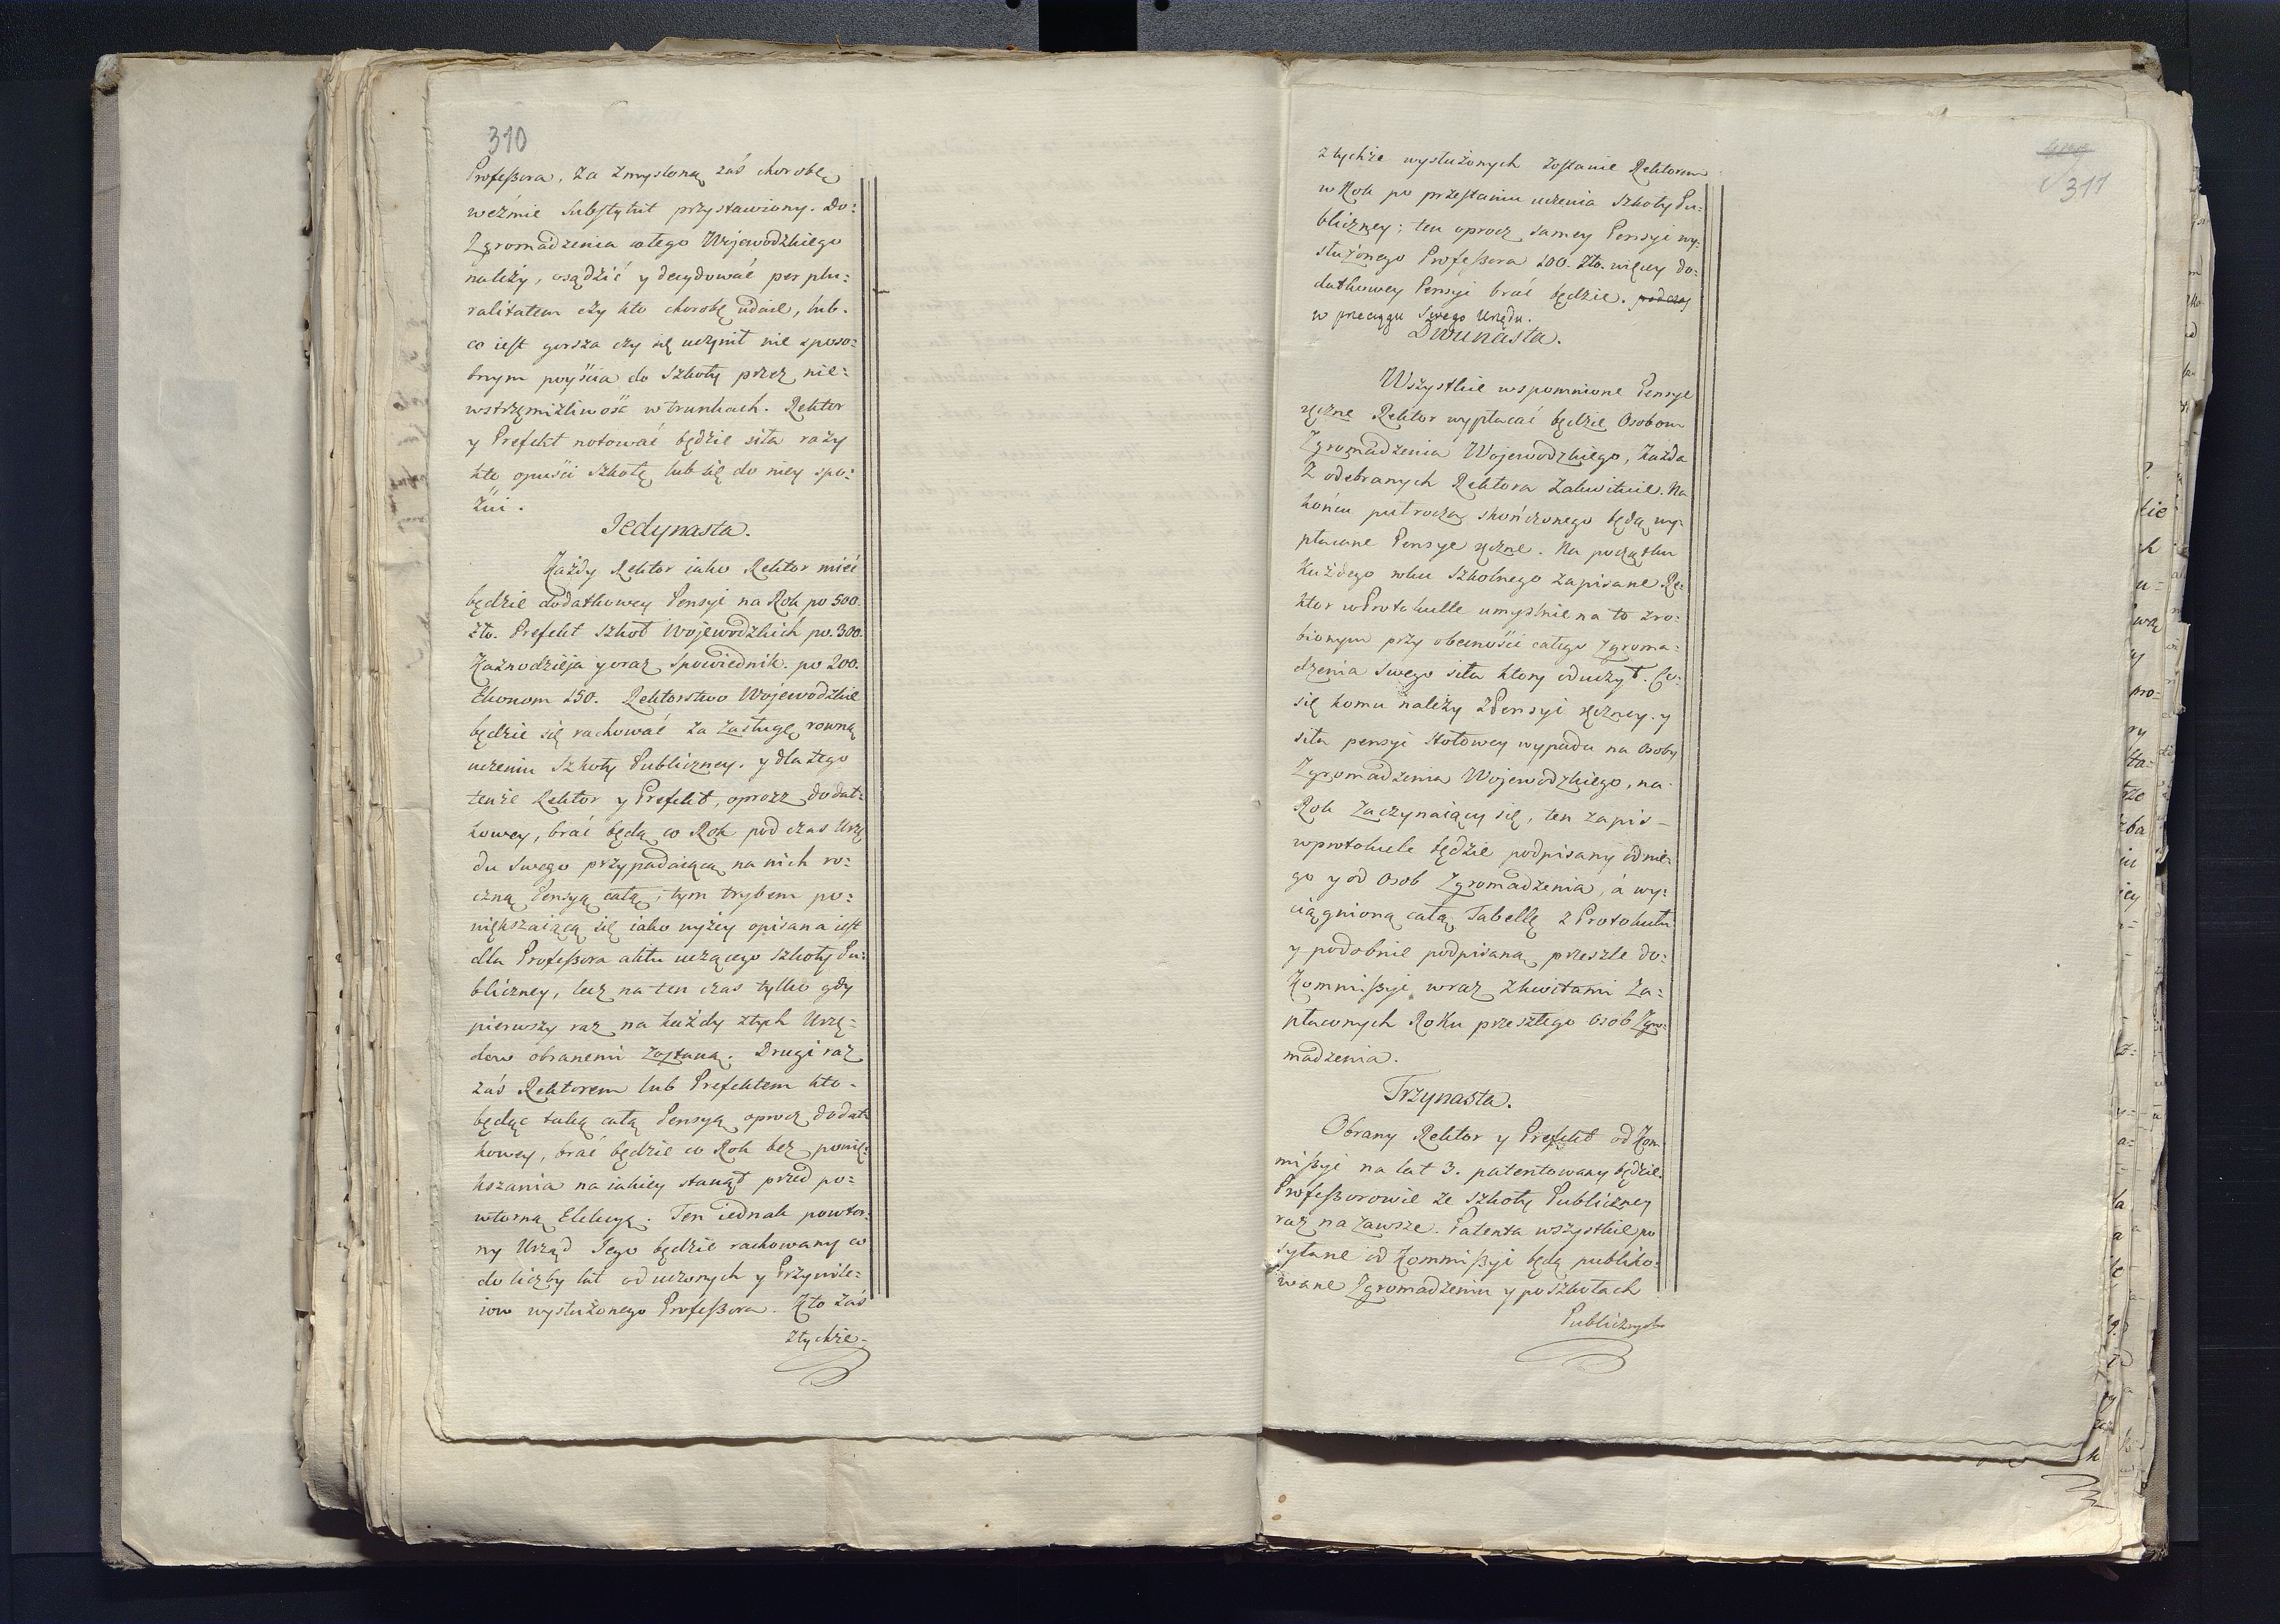 310
Professora, za zmysloną zaś chorobę
weźmie Substytut przystawiony. Do:
Zgromadzenia całego Wojewodzkiego
należy, osądzić y decydować per plu:
ralitatem czy kto chorobę udaie, lub.
co iest gorsza czy się uczynił nie sposo:
bnym poyścia do Szkoły przez nie:
wstrzęmiźliwość w trunkach. Rektor
y Prefekt notować będzie siła razy
kto opuści Szkołę lub się do niey spo:
źni.
Jedynasta.
Każdy Rektor iako Rektor mieć
będzie dodatkowey Pensyi na Rok po 500.
zło. Prefekt Szkoł Wojewodzkich po. 300.
Kaznodzieja y oraz Spowiednik. po 200.
Ekonom 150. Rektorstwo Wojewodzkie
będzie się rachować za zasługę rowną
uczeniu Szkoły Publiczney. y dla tego
tenże Rektor y Prefekt, oprocz dodat:
kowey, brać będą co Rok pod czas Urzę
du swego przypadaiącą na nich ro:
czną Pensyą całą; tym trybem po:
większaiącą się iako wyżey opisana iest
dla Professora aktu uczącego Szkoły Pu:
bliczney, lecz na ten czas tylko gdy
pierwszy raz na każdy z tych Urzę:
dow obranemi zostaną. Drugi raz
zaś Rektorem lub Prefektem kto-
będąc taką całą Pensyą oprocz dodat:
kowey, brać będzie co Rok bez powię:
kszania na iakiey stanął przed po:
wtorną Elekcyą. Ten iednak powtor:
ny Urząd Jego będzie rachowany co
do liczby lat oduczonych y Przywile:
iow wysłużonego Professora. Kto zaś
z tychże-
311
z tychże wysłużonych zostanie Rektorem
w Rok po przestaniu uczenia Szkoły Pu:
bliczney; ten oprocz samey Pensyi wy:
służonego Professora 200. zło. więcey do:
datkowey Pensyi brać będzie. podczas
w przeciągu Swego Urzędu.
Dwunasta.
Wszystkie wspomnione Pensye
ręczne Rektor wypłacać będzie Osobom
Zgromadzenia Wojewodzkiego, Każda
Z odebranych Rektora zakwituie. Na
końcu pułrocza skończonego będą wy:
płacane Pensye ręczne. Na początku
Każdego roku Szkolnego zapisane Re:
ktor w Protokulle umyślnie na to zro:
bionym przy obecności całego Zgroma:
dzenia swego siła ktory oduczył. Co:
się komu należy z Pensyi ręczney. y
siła pensyi stołowey wypada na Osoby
Zgromadzenia Wojewodzkiego, na-
Rok zaczynaiący się, ten zapis-
w protokule będzie podpisany od nie:
go y od Osob Zgromadzenia, a wy:
ciągnioną całą Tabellę z Protokułu
y podobnie podpisaną przeszle do:
Kommissyi wraz z kwitami za:
płaconych Roku przeszłego Osob Zgro:
madzenia.
Trzynasta.
Obrany Rektor y Prefekt od Kom
missyi na lat 3. patentowany będzie.
Professorowie ze Szkoły Publiczney
raz na zawsze. Patenta wszystkie po
syłane od Kommissyi będą publiko:
wane Zgromadzeniu y po Szkołach
Publicznych